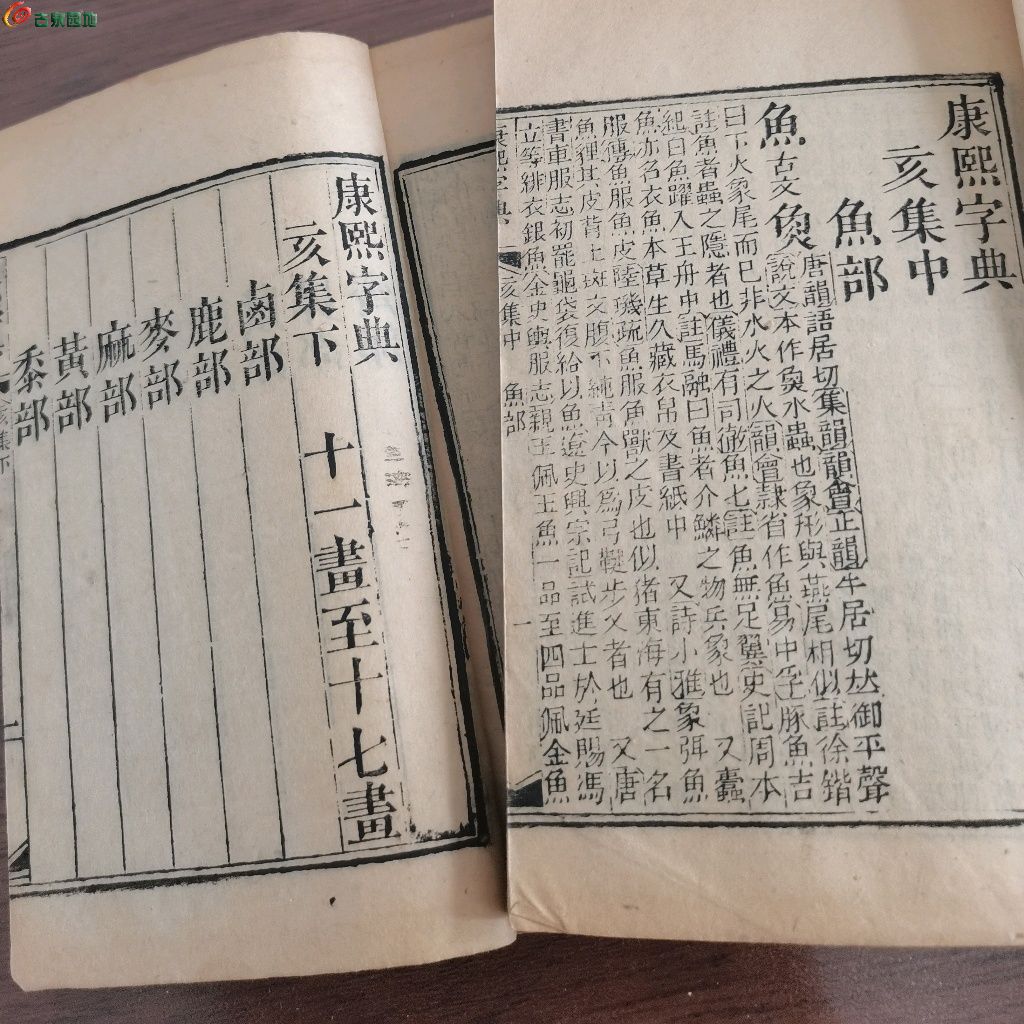 古泉园地
康熙字典
亥集中
魚部
魚古文𤋳
唐韻語居切集韻韻會正韻牛居切𠀤御平聲
說文本作𩵋水蟲也象形與燕尾相似註徐鍇
曰下火象尾而已非水火之火韻會隸省作魚易中孚豚魚吉
註魚者蟲之隱者也儀禮有司𠀤魚七註魚無足翼史記周本
紀白魚躍入王舟中註馬融曰魚者介鱗之物兵象也 又蠹
魚亦名衣魚本草生久藏衣帛及書紙中 又詩小雅象弭魚
服傳魚服魚皮陸璣疏魚服魚獸之皮也似猪東海有之一名
魚狸其皮背上斑文腹下純靑今以爲弓鞬步叉者也 又唐
書車服志初罷龜袋復給以魚遼史興宗記試進士於廷賜馮
立等緋衣銀魚金史輿服志親王佩玉魚一品至四品佩金魚
康熙字典
亥集中 魚部 一
康熙字典
亥集下 十一畫至十七畫
鹵部
鹿部
麥部
麻部
黃部
黍部
亥集下